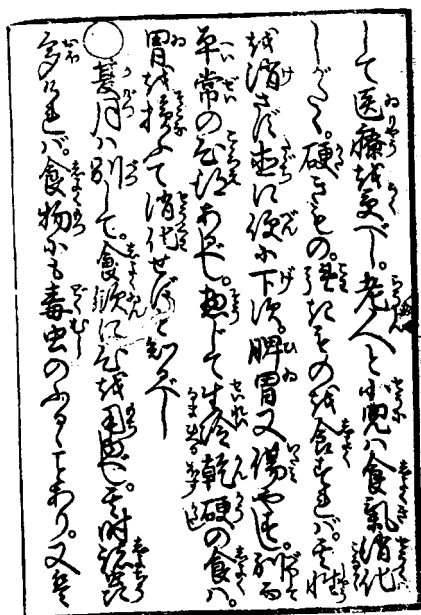 して医療を受べし。老人と小児ハ食気消化
しがたく。硬きもの。強きものを食すれバ。其性
を消さず直に便に下す。脾胃又傷やすし。別而
平常の心得あるべし。惣じて生冷乾硬の食ハ。
胃を損ふて消化せずと知るべし
〇夏月ハ別して。食飲に心を用ゆべし。其時諸虫
多けれバ。食物にも毒虫のふるゝことあり。又